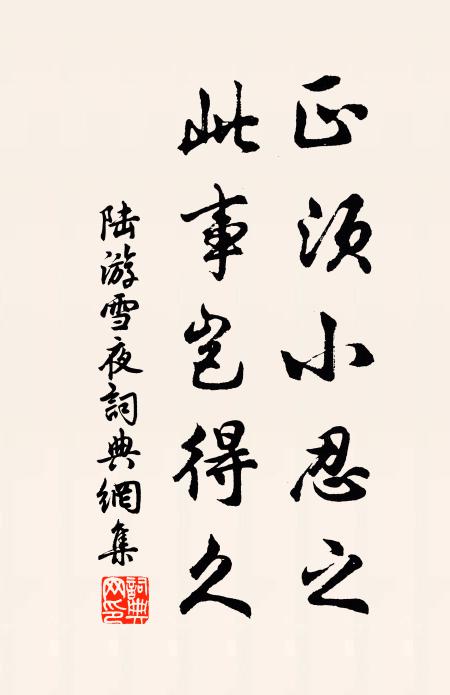 正須小忍之
此事豈得久
陸游雪夜詞典網集
詞典網印